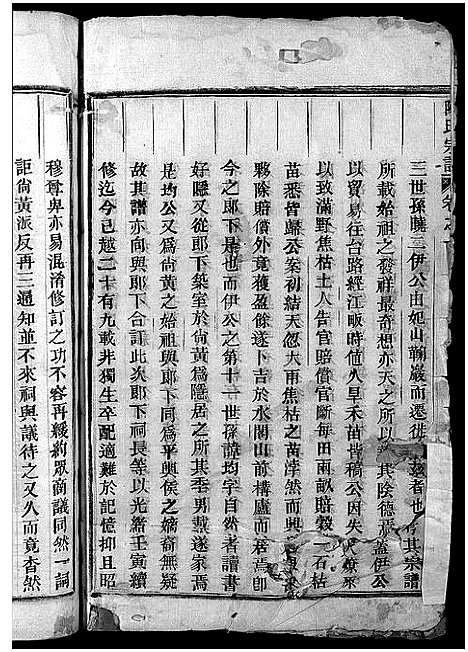 陳氏宗譜
三世孫曉三伊公由妃山麟巖而遷徙茲者也其宗譜
所載始祖之發祥最奇想亦天之所以其陰德焉蓋伊公
以貿易往台路經江畈時値久旱禾苗皆稿公因失火燎來
以致滿野焦枯土人告官賠償官斷每田兩畝賠穀一石枯
苗悉皆歸公案初結天忽大雨焦枯之苗浡然而興
夥除賠償外竟獲盈餘遂卜吉於水閣山前構廬而居焉卽
今之郎下是也而伊公之第十二世孫諱均字自然者讀書
好隱又從郎下築室於尙黃爲隱居之所其季男戴遂家焉
是均公又爲尙黃之始祖與郎下同爲平興侯之嫡裔無疑
故其譜亦向與郎下合訂此次郎下祠長等以光緖壬寅續
修迄今已越二十有九載非獨生卒配適難於記憶抑且昭
穆尊卑亦易混淆修訂之功不容再緩約眾商議同然一詞
詎尙黃派反再三通知並不來祠與議待之又久而竟杳然